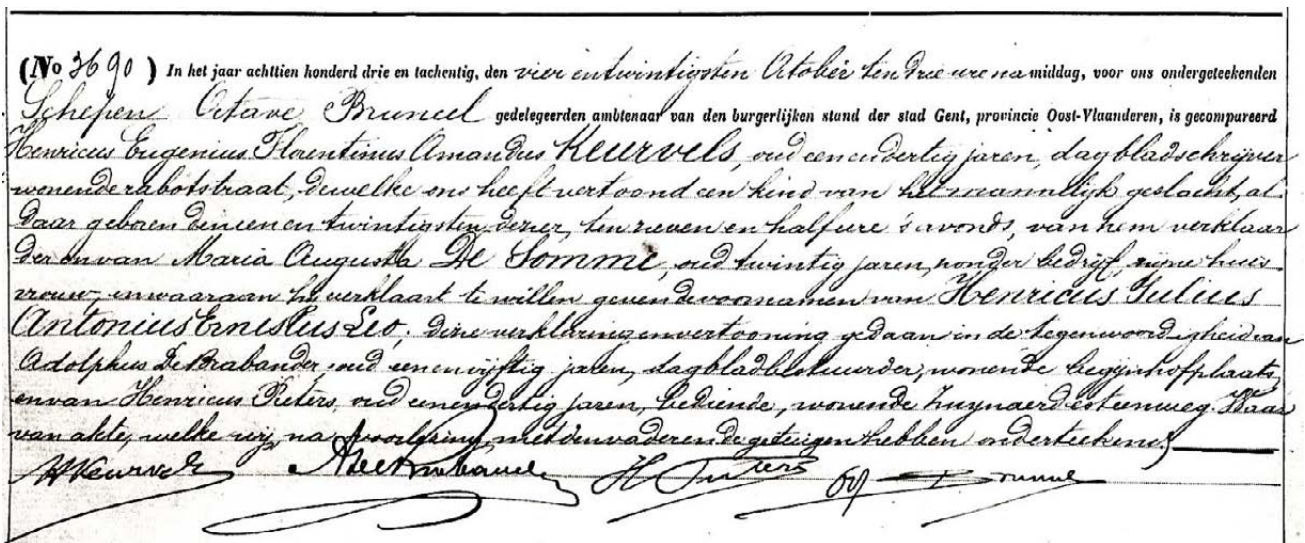 (No 3690) In het jaar achttien honderd drie en tachentig, den vier en twintigsten October ten drie ure na middag, voor ons ondergeteekenden
Schepen Octave Bruneel gedelegeerden ambtenaar van den burgerlijken stand der stad Gent, provincie Oost-Vlaanderen, is gecompareerd
Henricus Eugenius Florentinus Amandus Keurvels, oud een en dertig jaren, dagbladschrijver
wonende rabotstraat, dewelke ons heeft vertoond een kind van het mannelijk geslacht, al
daar geboren den een en twintigsten dezer, ten zeven en half ure 's avonds, van hem verklaar
der en van Maria Augusta De Somme, oud twintig jaren, zonder bedrijf, zijne huis
vrouw, en waaraan hij verklaart te willen geven de voornamen van Henricus Julius
Antonius Ernestus Leo, deze verklaring en vertooning gedaan in de tegenwoordigheid van
Adolphus De Brabander, oud een en vijftig jaren, dagbladbestuurder, wonende begijnhofplaats,
en van Henricus Pieters, oud een en dertig jaren, bediende, wonende Zwynaerdesteenweg. Waar
van akte, welke wij, na voorlezing, met den vader en de getuigen hebben onderteekend.
HKeurvels ADeBrabander H Pieters Bruneel